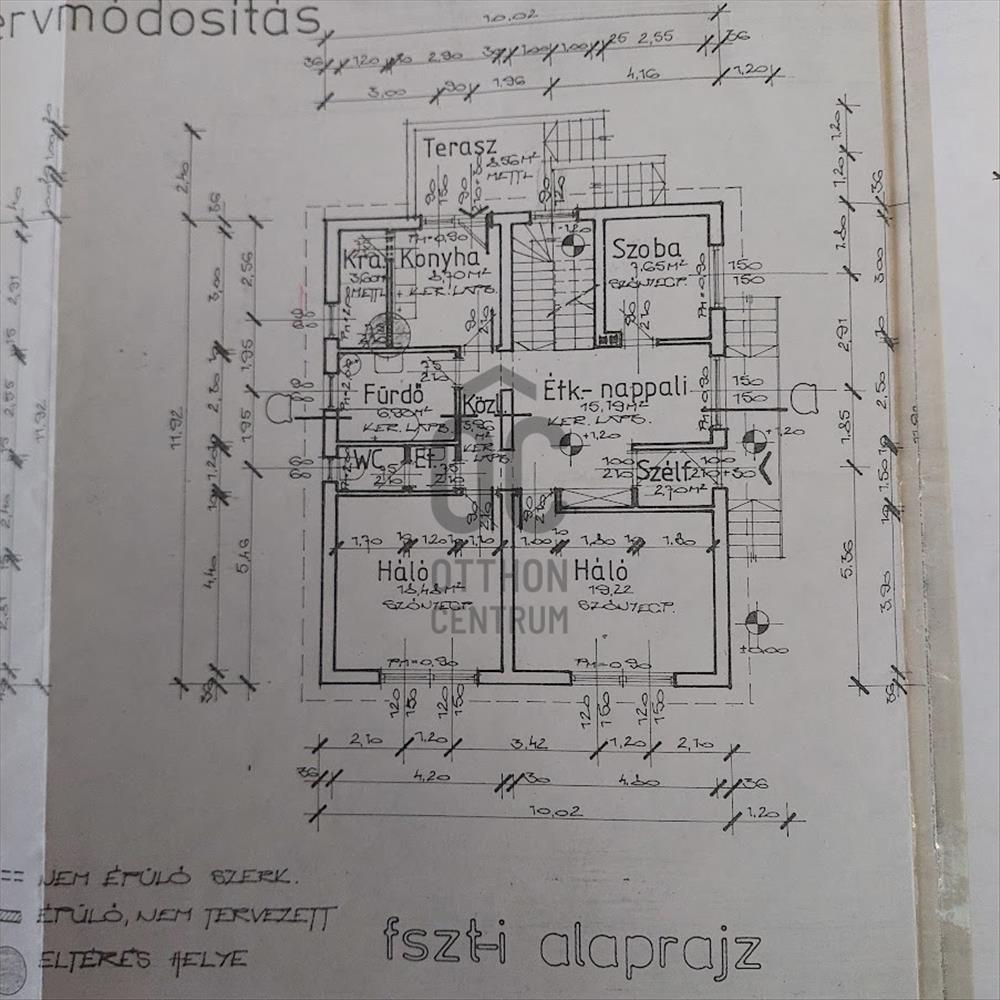 ervmódosítás
10,02
36 120 2,90 1,00 1,00 25 2,55 36
3,00 90 1,96 4,16 1,20
Terasz
METTL
Kra.
3,60m²
METTL
Konyha
8,70m²
KER. LAPB.
Szoba
7,65m²
SZŐNYEGP.
-1,20
PM=0,90
150
150
Fürdő
6,90m²
KER. LAPB.
Közl.
Étk.-nappali
15,19m²
KER. LAPB.
+1,20
150
150
+1,20
WC
Et.
Szélf.
2,70m²
1,70 1,20 1,10 1,00 1,80 1,80
Háló
18,48m²
SZŐNYEGP.
Háló
19,22
SZŐNYEGP.
OTTHON
CENTRUM
PM=0,90
PM=0,90
±0,00
120 150 120 150 120 150 120 150
2,10 1,20 3,42 1,20 2,10
36 4,20 30 4,80 36
10,02 1,20
2,40
36
2,56
3,00
1,95
1,95
2,80
11,92
1,20
5,46
4,40
36
1,20
1,20
36
1,80
3,00
2,91
2,50
1,85
1,50
5,36
3,90
36
NEM ÉPÜLŐ SZERK.
ÉPÜLŐ, NEM TERVEZETT
ELTÉRÉS HELYE
fszt-i alaprajz